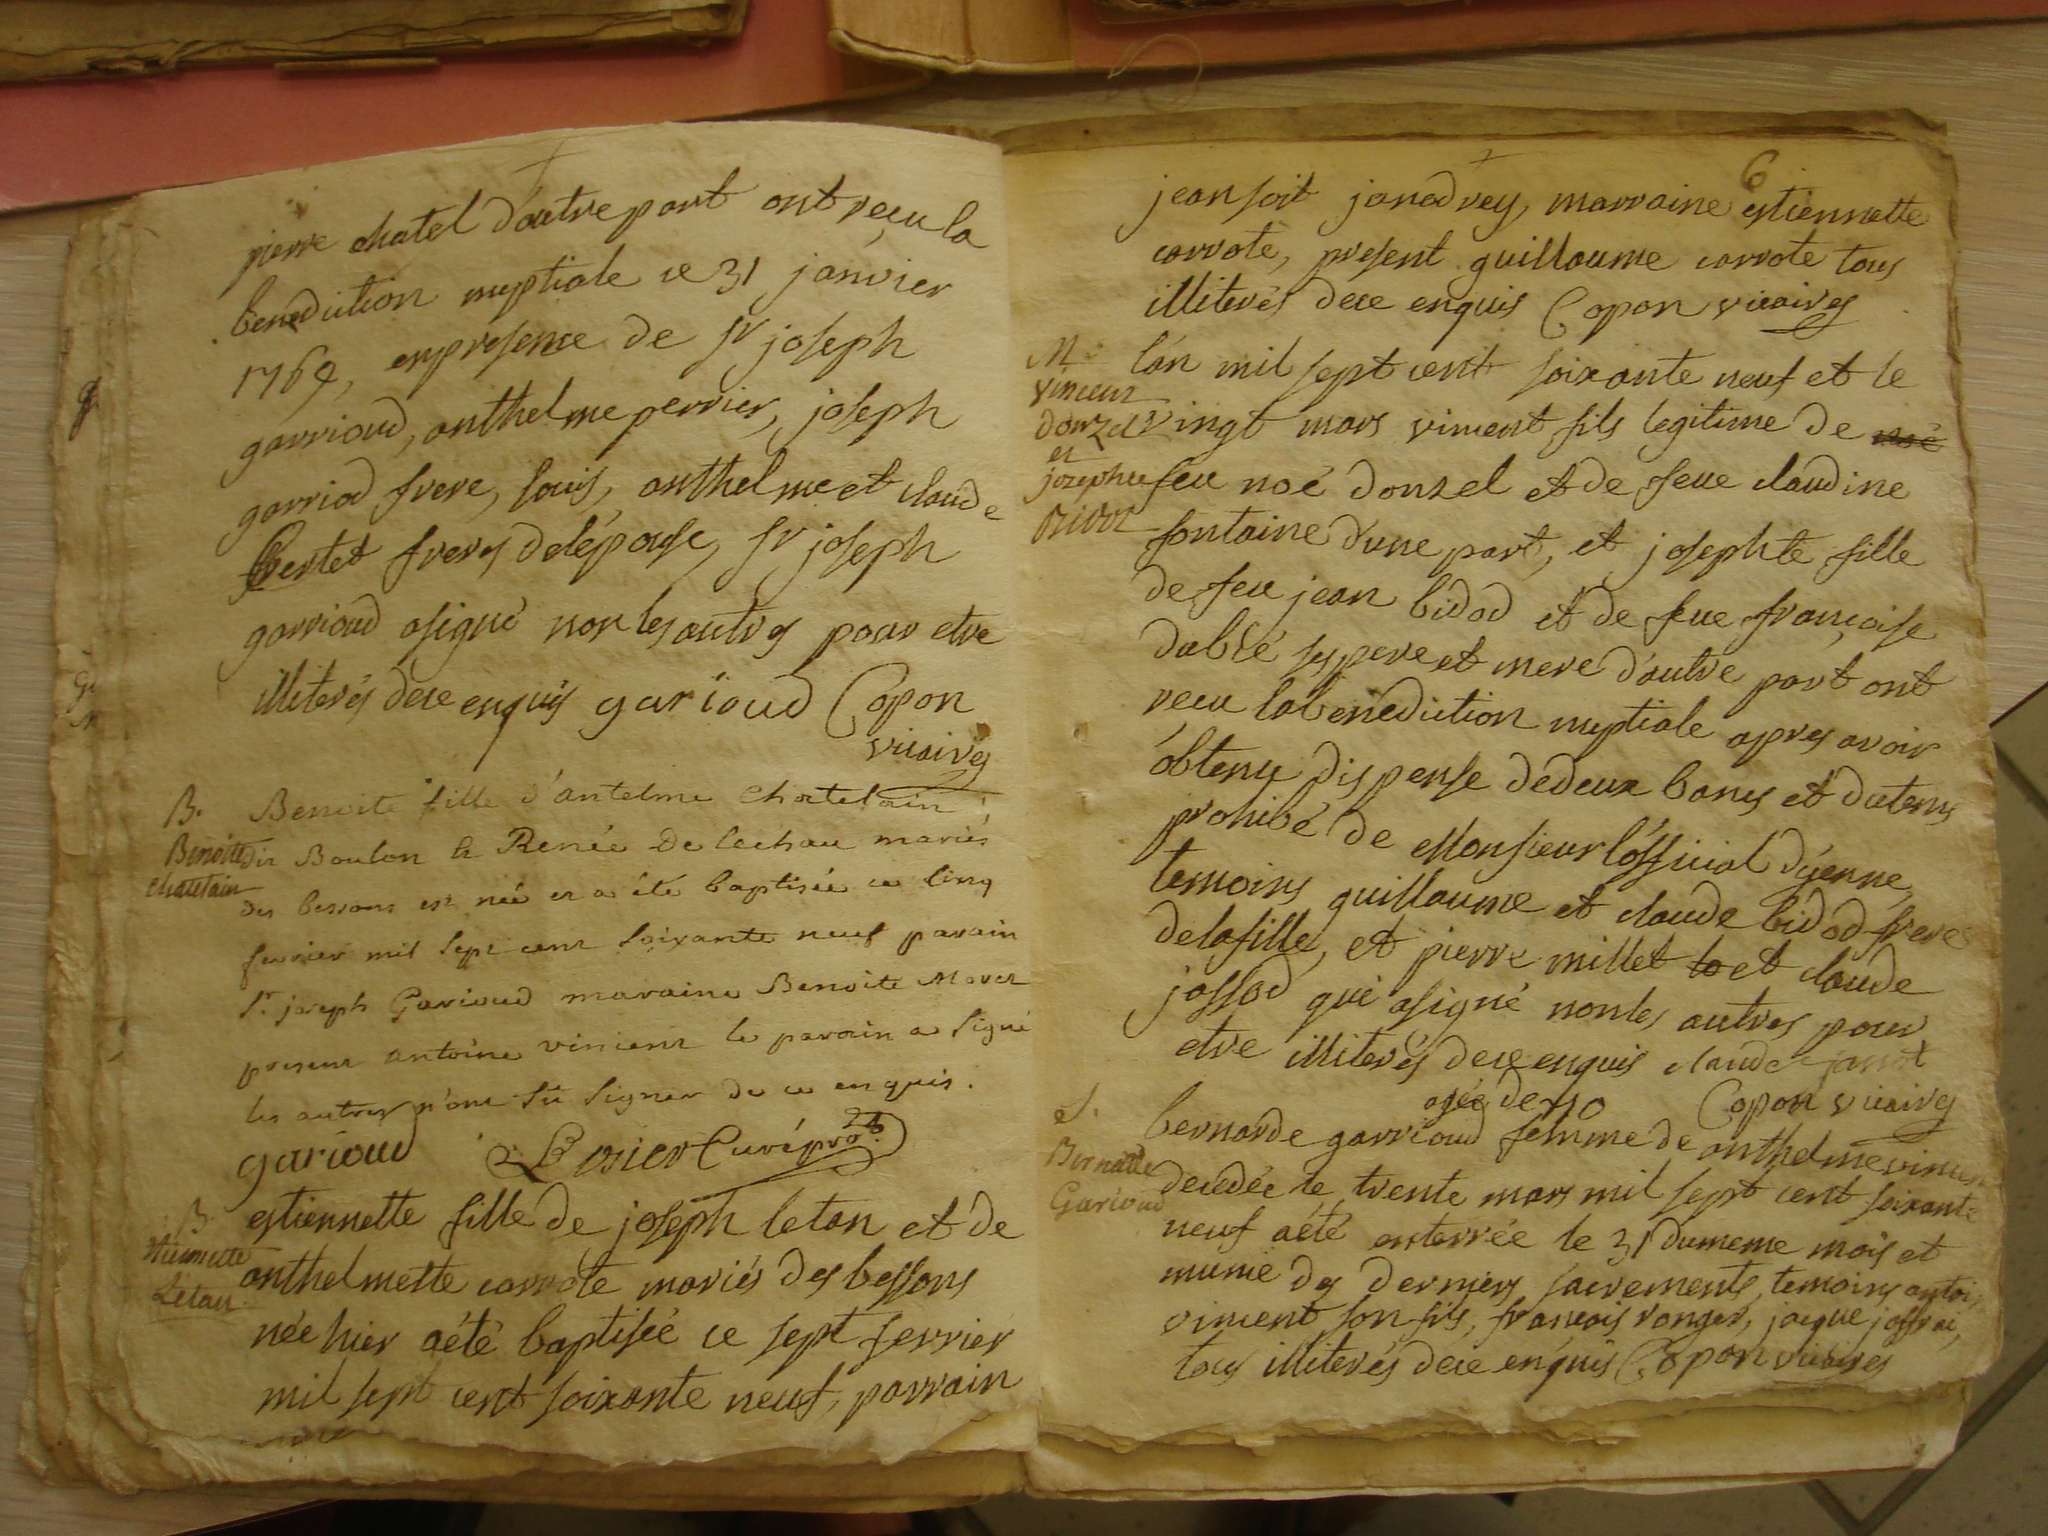 pierre chatel d'autre part ont reçu la
benediction nuptiale ce 31 janvier
1769, en presence de sr joseph
garrioud, anthelme perrier, joseph
garriod frere, louis, anthelme et claude
bertet freres de lépouse, sr joseph
garrioud a signé non les autres pour etre
illiterés de ce enquis garioud Copon
vicaires
B.
Benoite
chatelain
Benoite fille d'antelme Chatelain
dit Boulon & Renée De lechau mariés
des bessons est née et a été baptisée ce cinq
fevrier mil sept cent soixante neuf parain
sr. joseph Garioud maraine Benoite Moret
present antoine vincent le parain a signé
les autres n'ont sû signer de ce enquis.
garioud Curé
B
etiennette
Létan
estiennette fille de joseph letan et de
anthelmette carrote mariés des bessons
née hier a été baptisée ce sept fevrier
mil sept cent soixante neuf, parrain
6
jean soit marraine estiennette
carrote, present guillaume carrote tous
illiterés de ce enquis Copon vicaires
M
vincent
donzel
et
josephte
bidod
lán mil sept cent soixante neuf et le
vingt mars vincent fils legitime de noé
feu noé donzel et de feue claudine
fontaine d'une part, et josephte fille
de feu jean bidod et de feue françoise
dublé ses pere et mere d'autre part ont
recu la benediction nuptiale apres avoir
obtenu dispense de deux bancs et du tems
prohibé de Monsieur lófficial dÿenne,
temoins guillaume et claude bidod freres
de la fille, et pierre millet et claude
jossod qui a signé non les autres pour
etre illiterés de ce enquis claude jossot
Copon vicaires
S.
Bernarde
Garioud
agée de 70
bernarde garrioud femme de anthelme vincent
decedée le trente mars mil sept cent soixante
neuf a été enterrée le 31 du meme mois et
munie des derniers sacrements, temoins antoi
vincent son fils, françois ronger, jacque
tous illiterés de ce enquis Copon vicaires